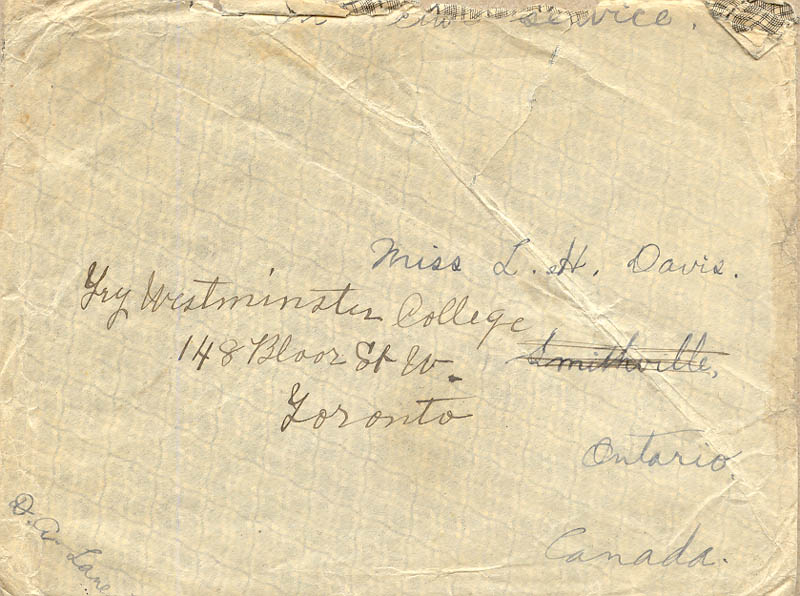 service.
Miss L. H. Davis.
Try Westminster College
148 Bloor St W.
Smithville,
Toronto
Ontario,
Canada.
D. A. Lane